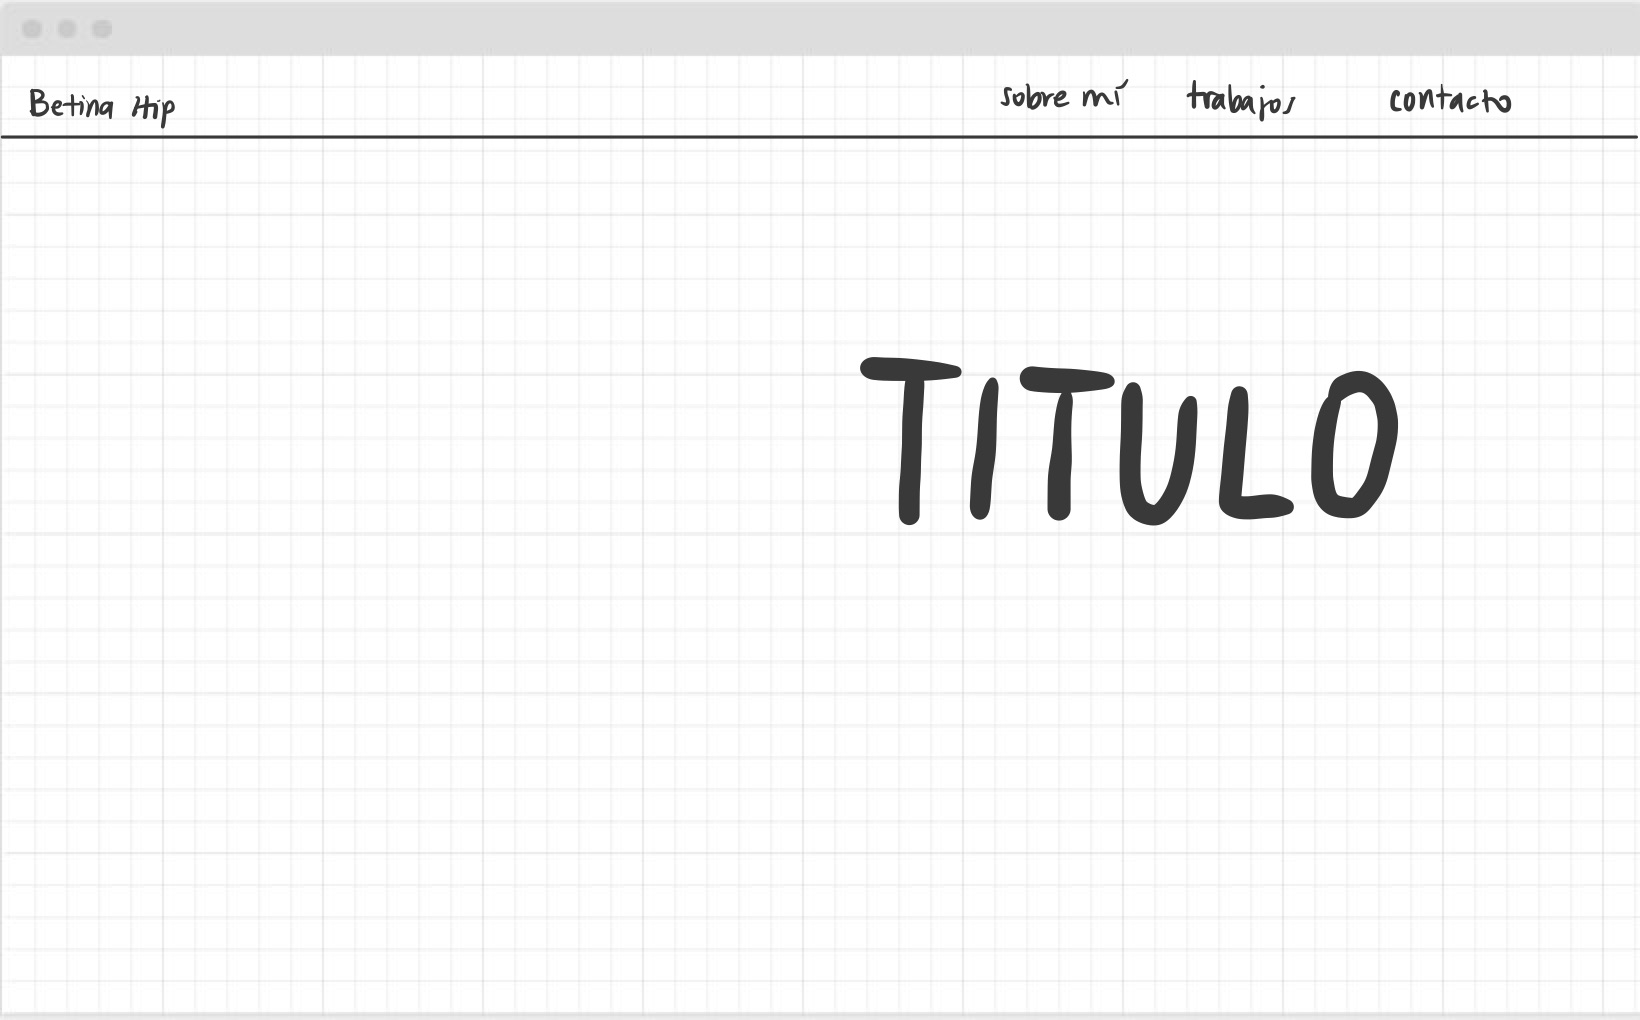 Betina Hip sobre mí trabajos contacto
TITULO